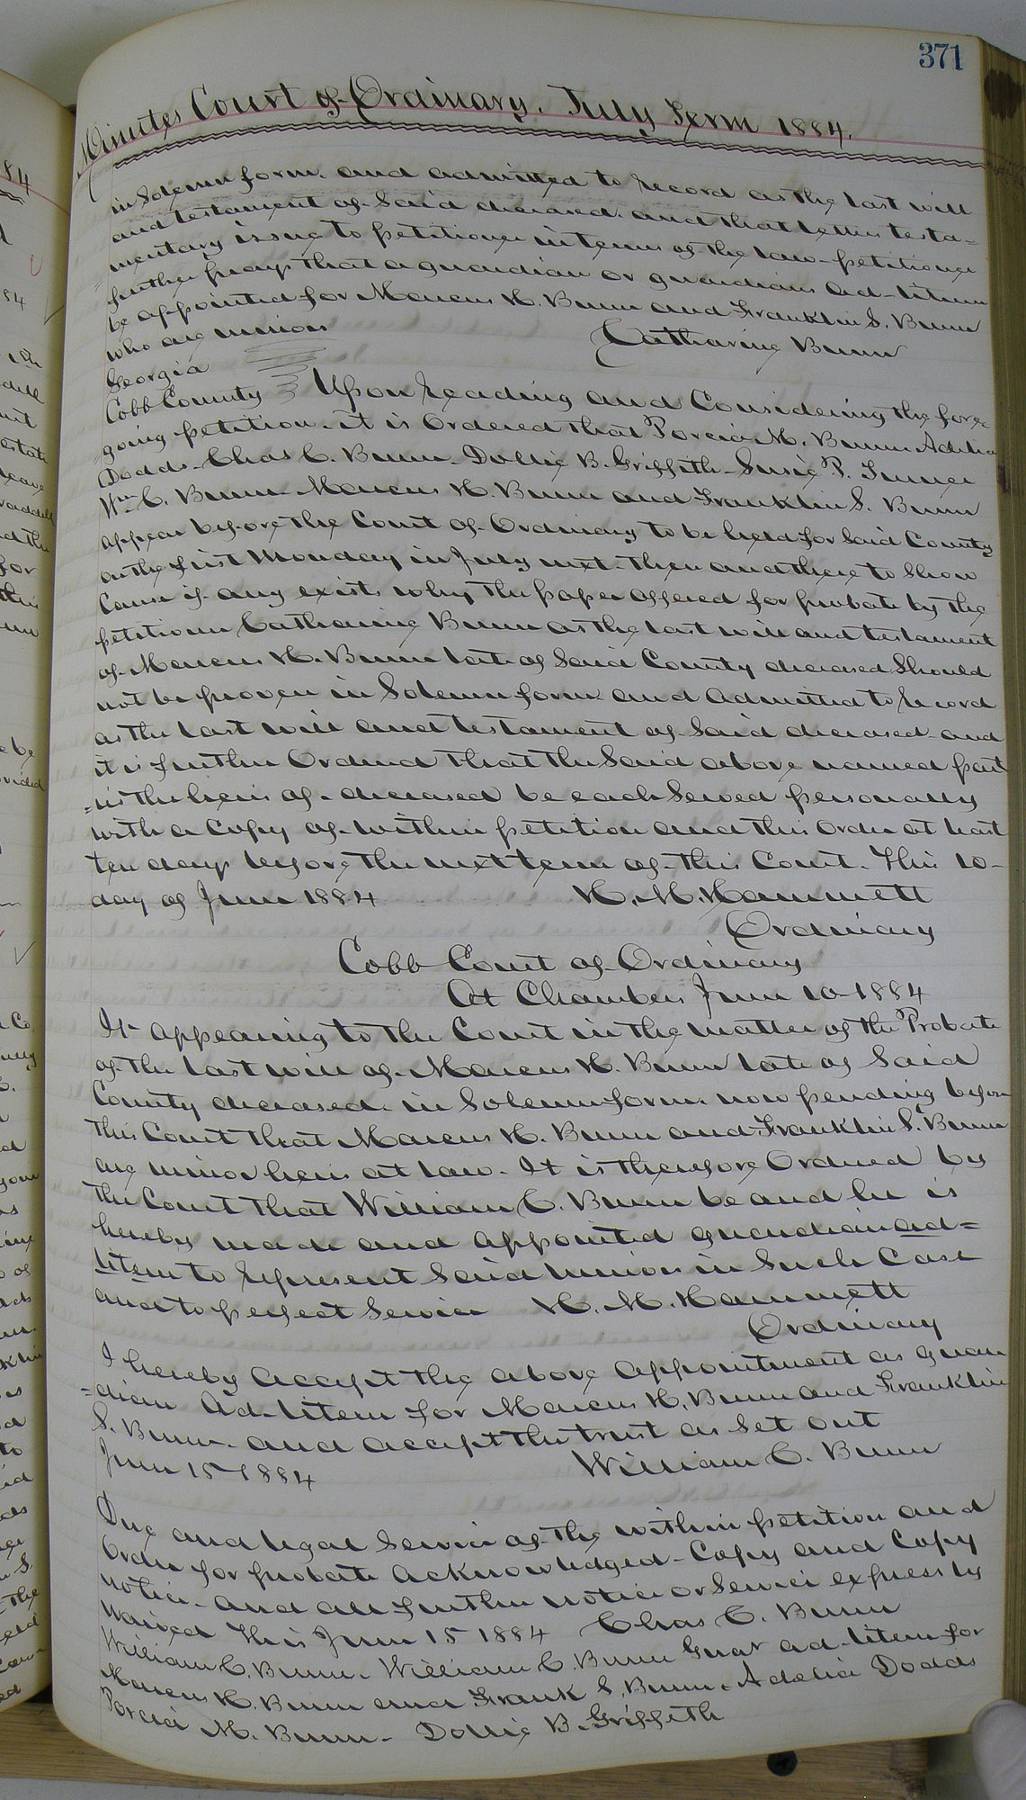 371
Minutes Court of Ordinary, July Term 1884.
in Solemn form, and admitted to record as the last will
and testament of Said deceased, and that letters testa=
mentary issue to petitioner in terms of the law - petitioner
further prays that a guardian or guardians ad-litem
be appointed for Marcus H. Bunn and Franklin S. Bunn
who are minors
Catharine Bunn
Georgia
Cobb County Upon reading and Considering the fore
going petition, it is Ordered that Porcia M. Bunn, Adelia
Dodds - Chas C. Bunn - Dollie B. Griffith - Susie P. Turner
Wm C. Bunn - Marcus H. Bunn and Franklin S. Bunn
appear before the Court of Ordinary to be held for Said County
on the first Monday in July next - then and there to Show
Cause if any exists why the paper offered for probate by the
petitioner Catharine Bunn as the last will and testament
of Marcus H. Bunn late of Said County deceased Should
not be proven in Solemn form and admitted to record
as the last will and testament of Said deceased - and
it is further Ordered that the Said above named part
=ies the heirs of deceased be each Served personally
with a Copy of within petition and this Order at least
ten days before the next term of this Court. This 10-
day of June 1884 H. M. Hammett
Ordinary
Cobb Court of Ordinary
At Chambers June 10-1884
It appearing to the Court in the matter of the Probate
of the last will of Marcus H. Bunn late of Said
County deceased, in Solemn form, now pending before
this Court that Marcus H. Bunn and Franklin S. Bunn
are minor heirs at law - It is therefore Ordered by
the Court that William C. Bunn be and he is
hereby made and appointed guardian ad=
litem to represent Said minors in Such Case
and to perfect Service H. M. Hammett
Ordinary
I hereby accept the above appointment as guar
=dian Ad-litem for Marcus H. Bunn and Franklin
S. Bunn - and accept the trust as Set out
June 15 1884 William C. Bunn
Due and legal Service of the within petition and
Order for probate acknowledged - Copy and Copy
notice - and all further notice or Service expressly
waived This June 15 1884 Chas C. Bunn
William C. Bunn - William C. Bunn Guar ad-litem for
Marcus H. Bunn and Frank S. Bunn - Adelia Dodds
Porcia M. Bunn - Dollie B. Griffith